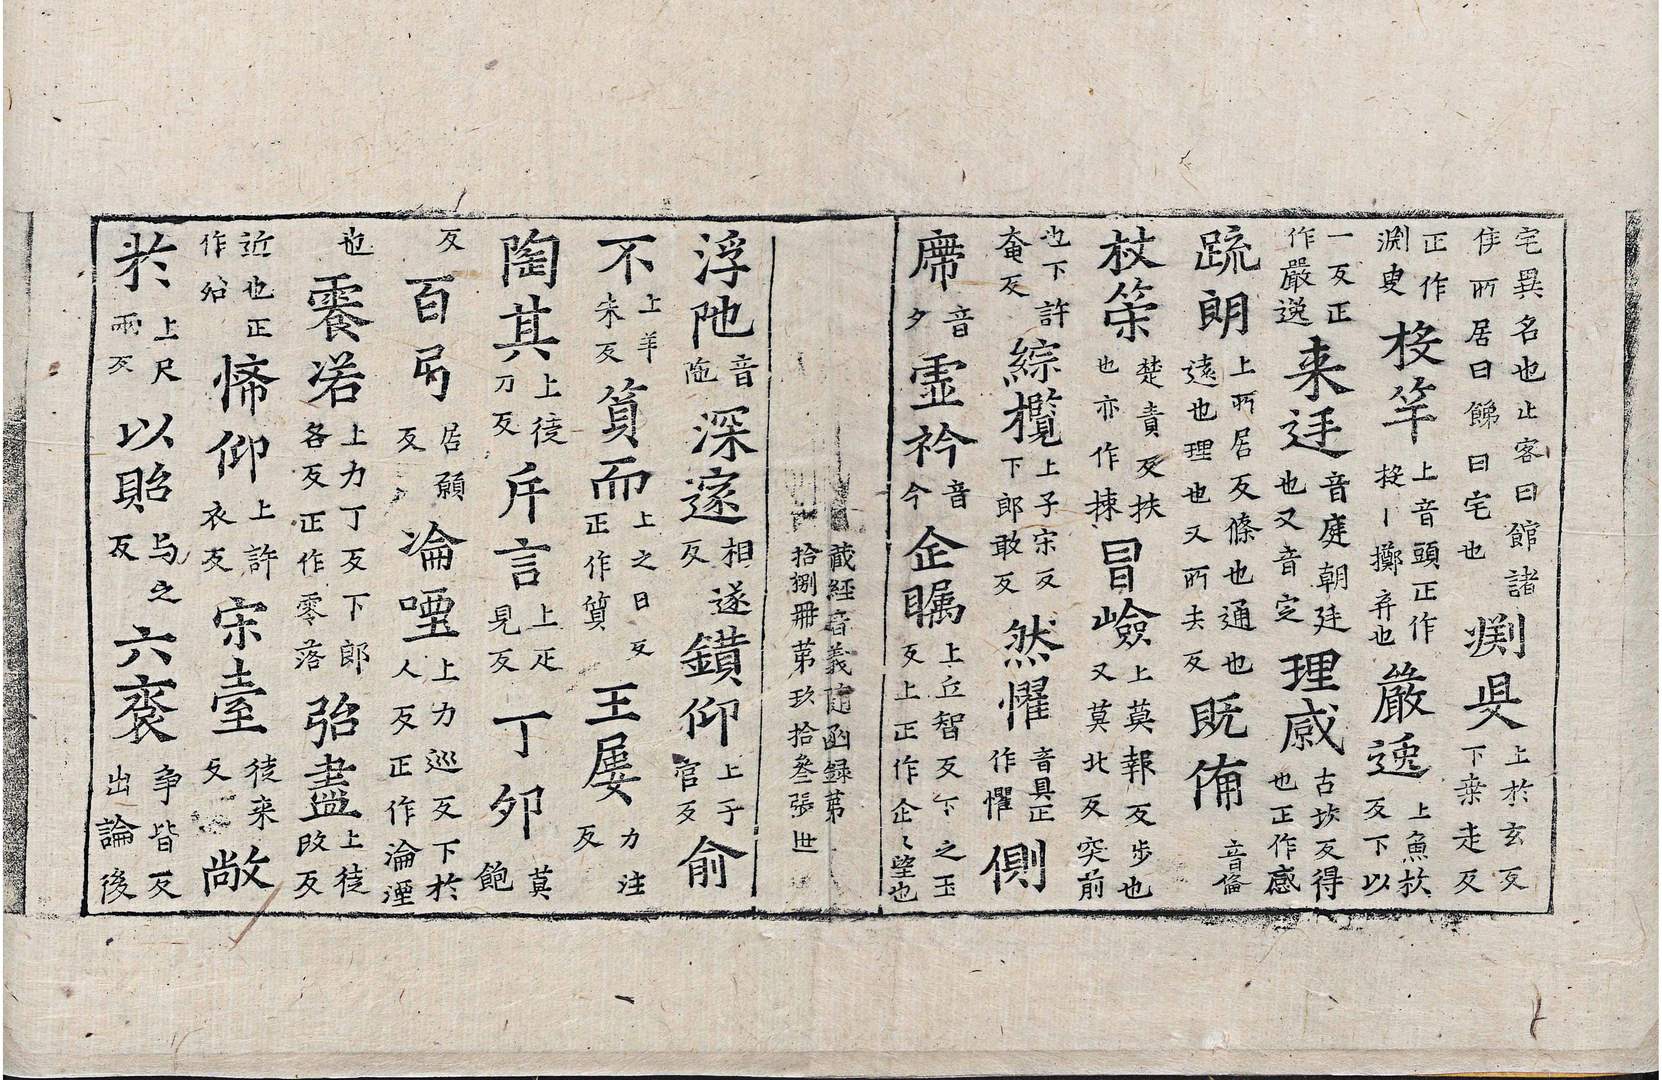 宅異名也止客曰館諸
侟所居曰餙曰宅也
𣧑㕜上於玄反
下桒走反
正作
淵叟
桵竿上音頭正作
掷丨擲弃也
嚴逸上魚㭕
反下以
一反正
作嚴逸
来迋音庭朝廷
也又音定
理感古坎反得
也正作感
䟽朗上所居反條也通也
遠也理也又所去反
既俻音
備
杖筞楚責反扶
也亦作揀
冒嶮上莫報反步也
又莫北反突前
也下許
奄反
綜欖上子宋反
下郎敢反
然懼音具正
作懼
側
席音
夕
靈衿音
今
企瞩上丘智反下之玉
反上正作企企望也
藏經音義隨函録第
拾捌冊第玖拾叄張世
浮阤音
陁
深邃相遂
反
鑚仰上子
官反
俞
不上羊
朱反
貿而上之日反
正作質
王屡力注
反
陶其上徒
刀反
斥言上疋
見反
丁夘莫
飽
反
百㢧居願
反
淪堙上力巡反下於
人反正作淪湮
也
霠落上力丁反下郎
各反正作零落
殆盡上徒
改反
近也正
作殆
悕仰上許
衣反
宗臺徒来
反
敞
扵上尺
兩反
以貽与之
反
六袠争皆反
出論後